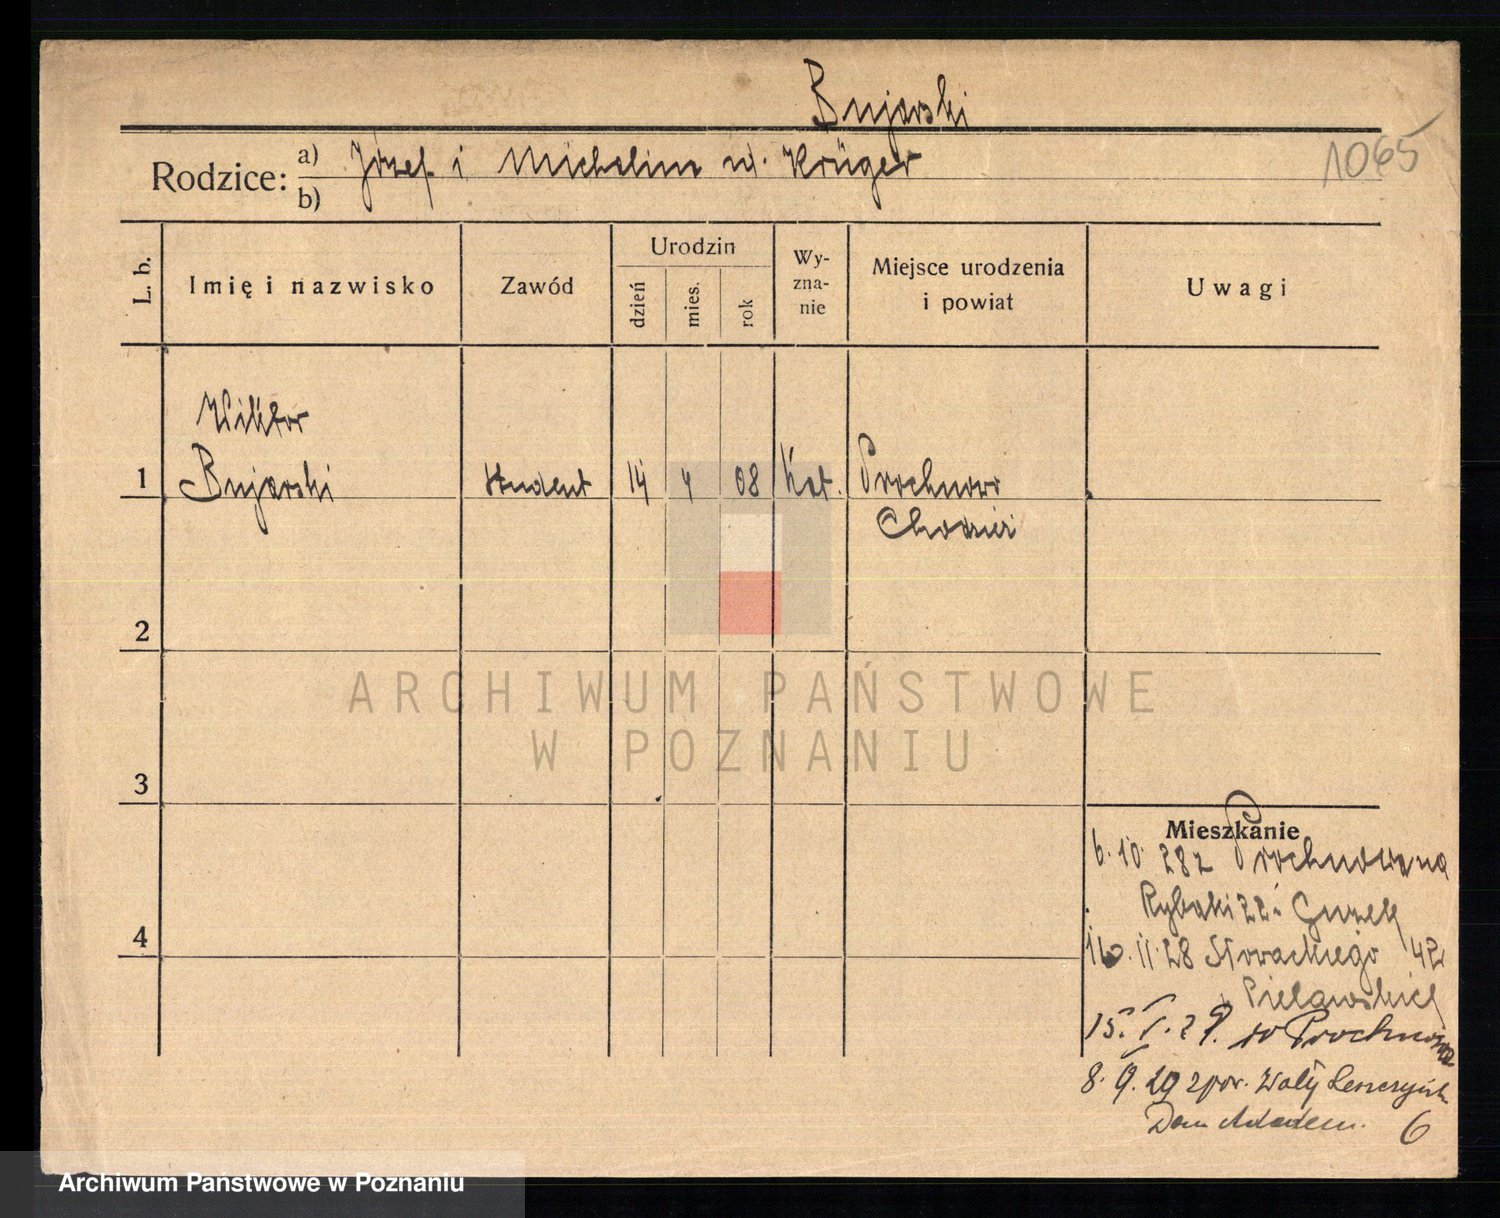 Bujarski
Rodzice: a) Józef i Michalina ur. Krüger
b)
1065
L. b.
Imię i nazwisko
Zawód
Urodzin
dzień
mies.
rok
Wy-
zna-
nie
Miejsce urodzenia
i powiat
Uwagi
Wiktor
1 Bujarski student 14 4 08 Kat. Prochnowo
Chodzież
2
3
4
Mieszkanie
6.10.28 z Prochnowa na
Rybaki 22
16.11.28 Słowackiego 42
15. 29. do Prochnowa
8. 29 z pow. Wały Leszczyńsk
Dom Akadem. 6
ARCHIWUM PAŃSTWOWE
W POZNANIU
Archiwum Państwowe w Poznaniu